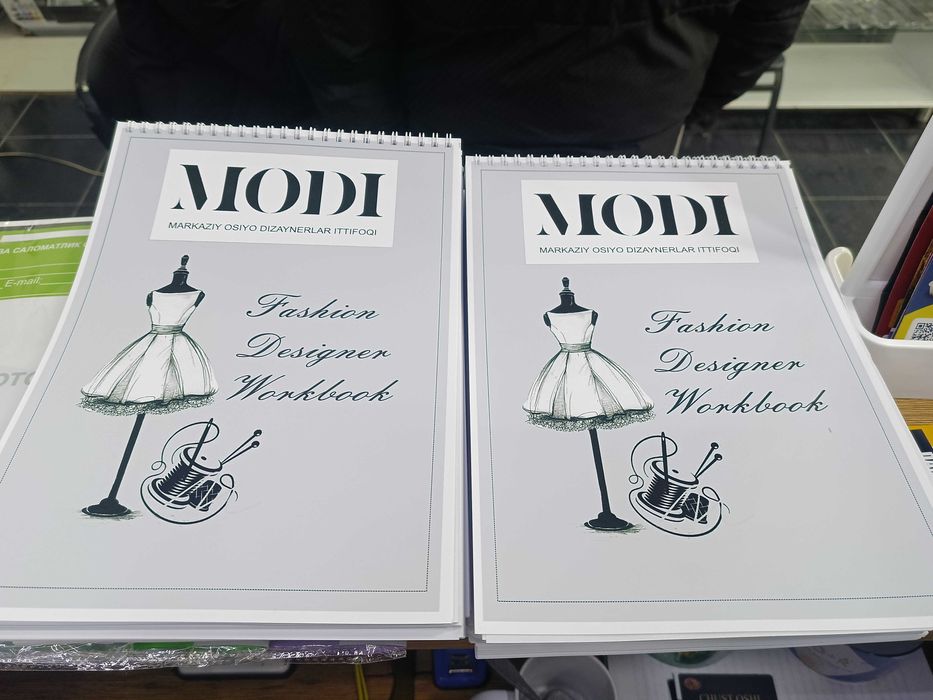 MODI
MARKAZIY OSIYO DIZAYNERLAR ITTIFOQI
Fashion
Designer
Workbook
MODI
MARKAZIY OSIYO DIZAYNERLAR ITTIFOQI
Fashion
Designer
Workbook
ВА САЛОМАТЛИК
E-mail